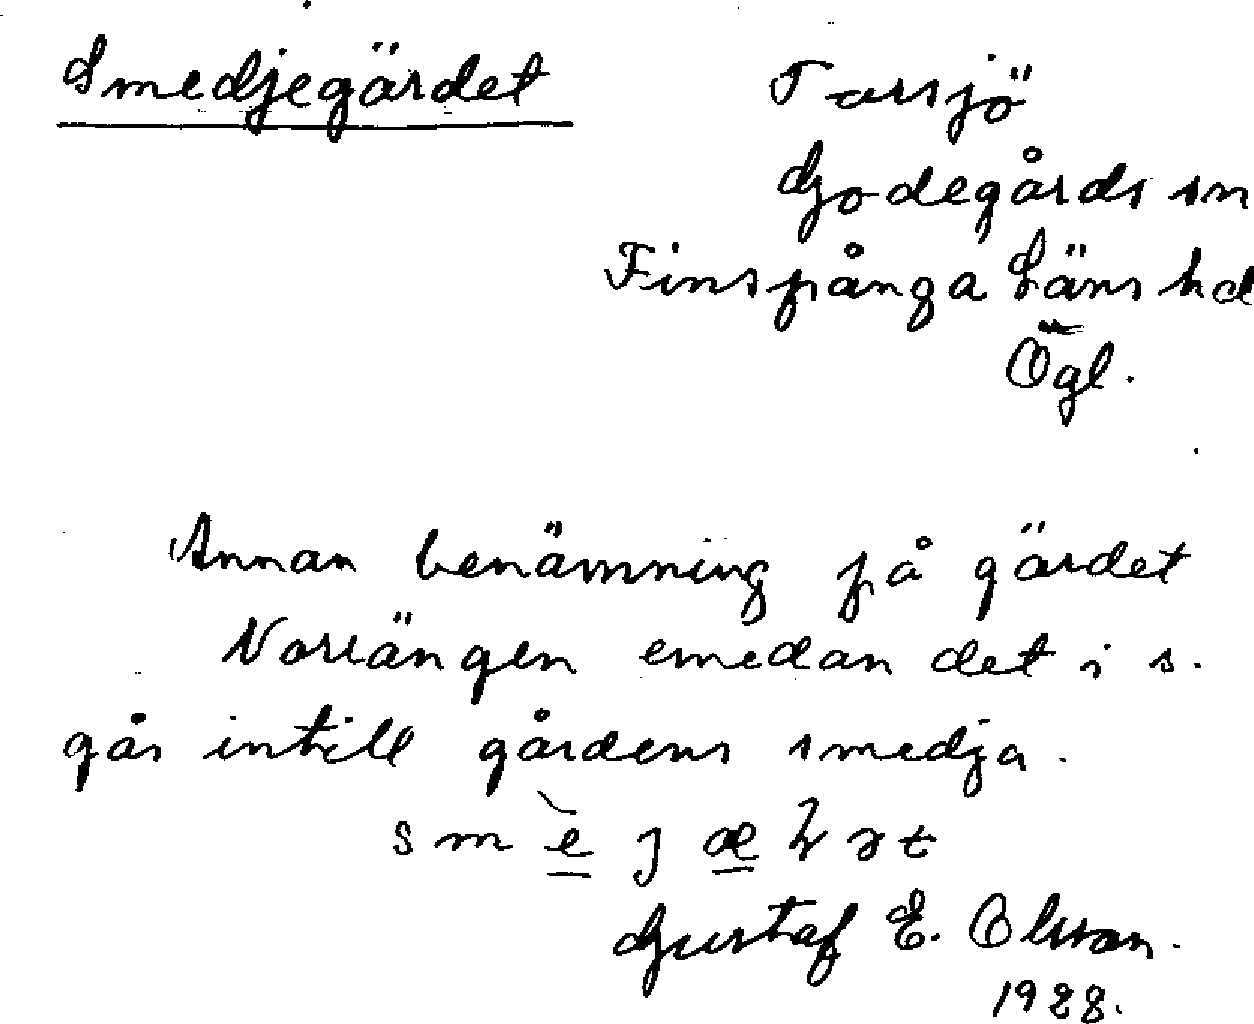 Smedjegärdet
Torsjö
Godegårds sn
Finspånga Läns hd
Ögl.
Annan benämning på gärdet
Norrängen emedan det i s.
går intill gårdens smedja.
Gustaf E. Olsson.
1928.